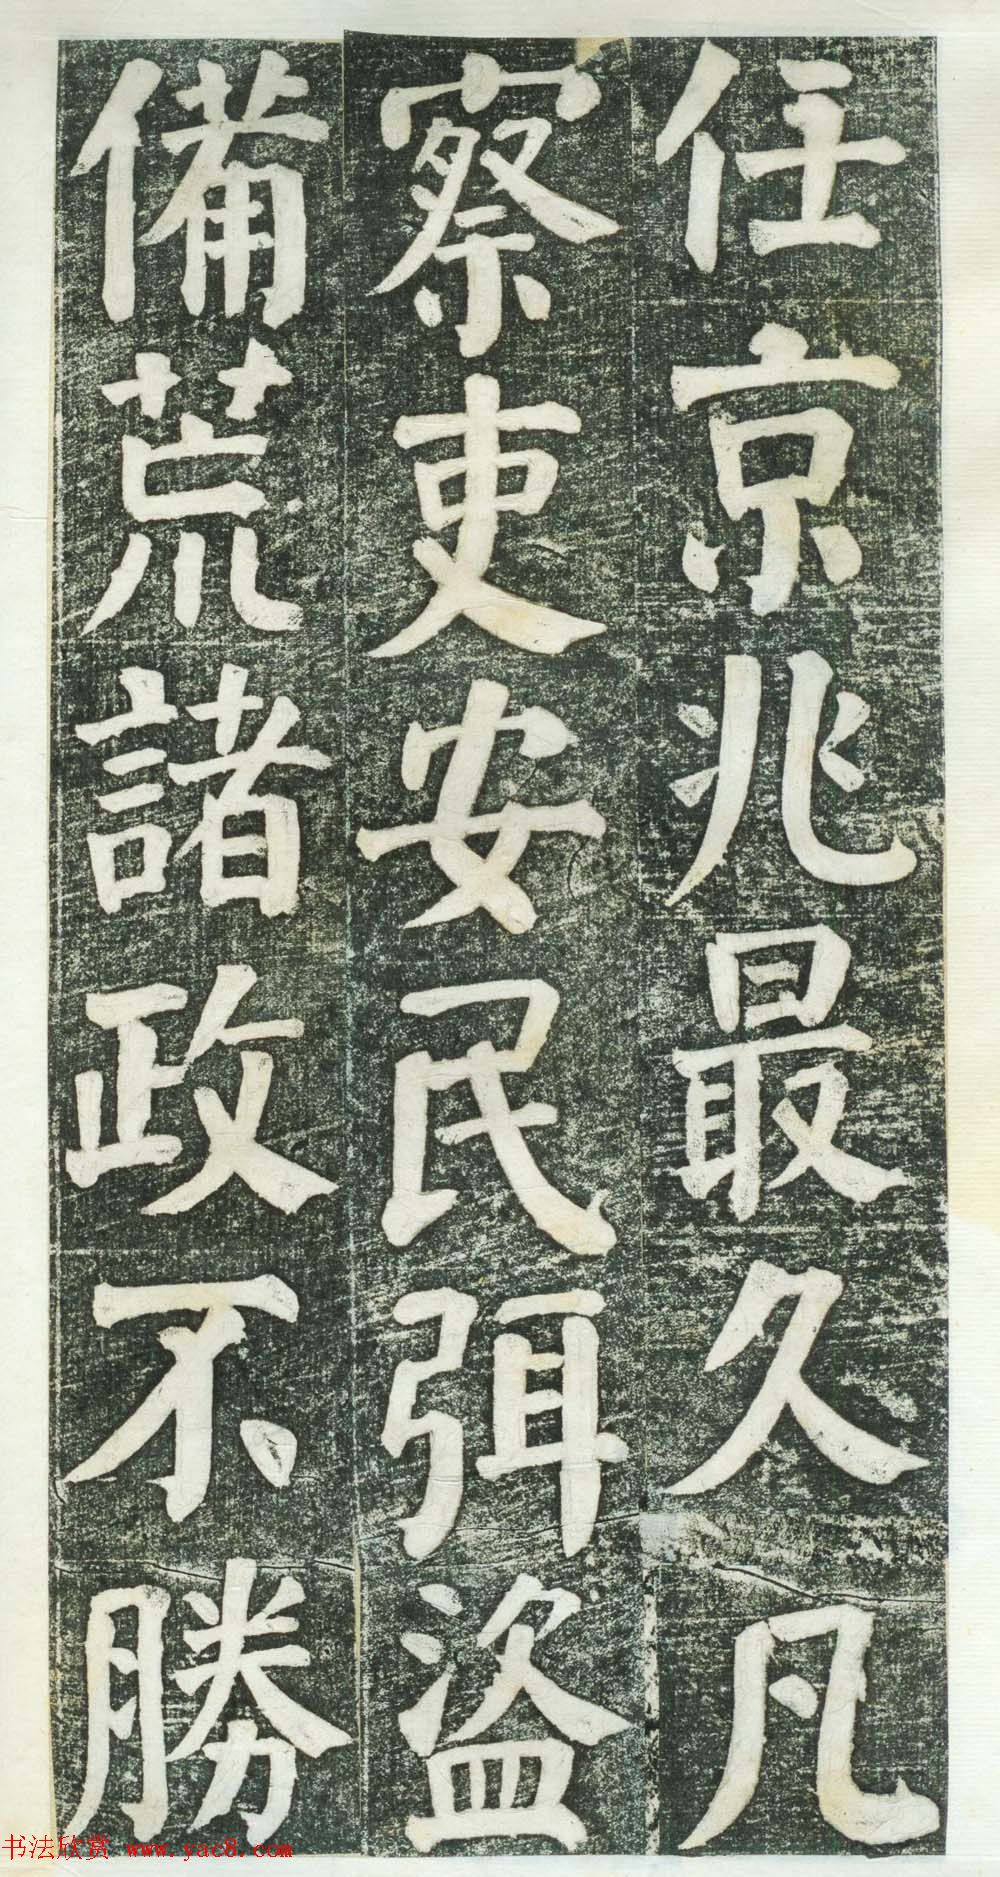 任京兆最久凡
察吏安民弭盜
備荒諸政不勝
书法欣赏 www.yac8.com